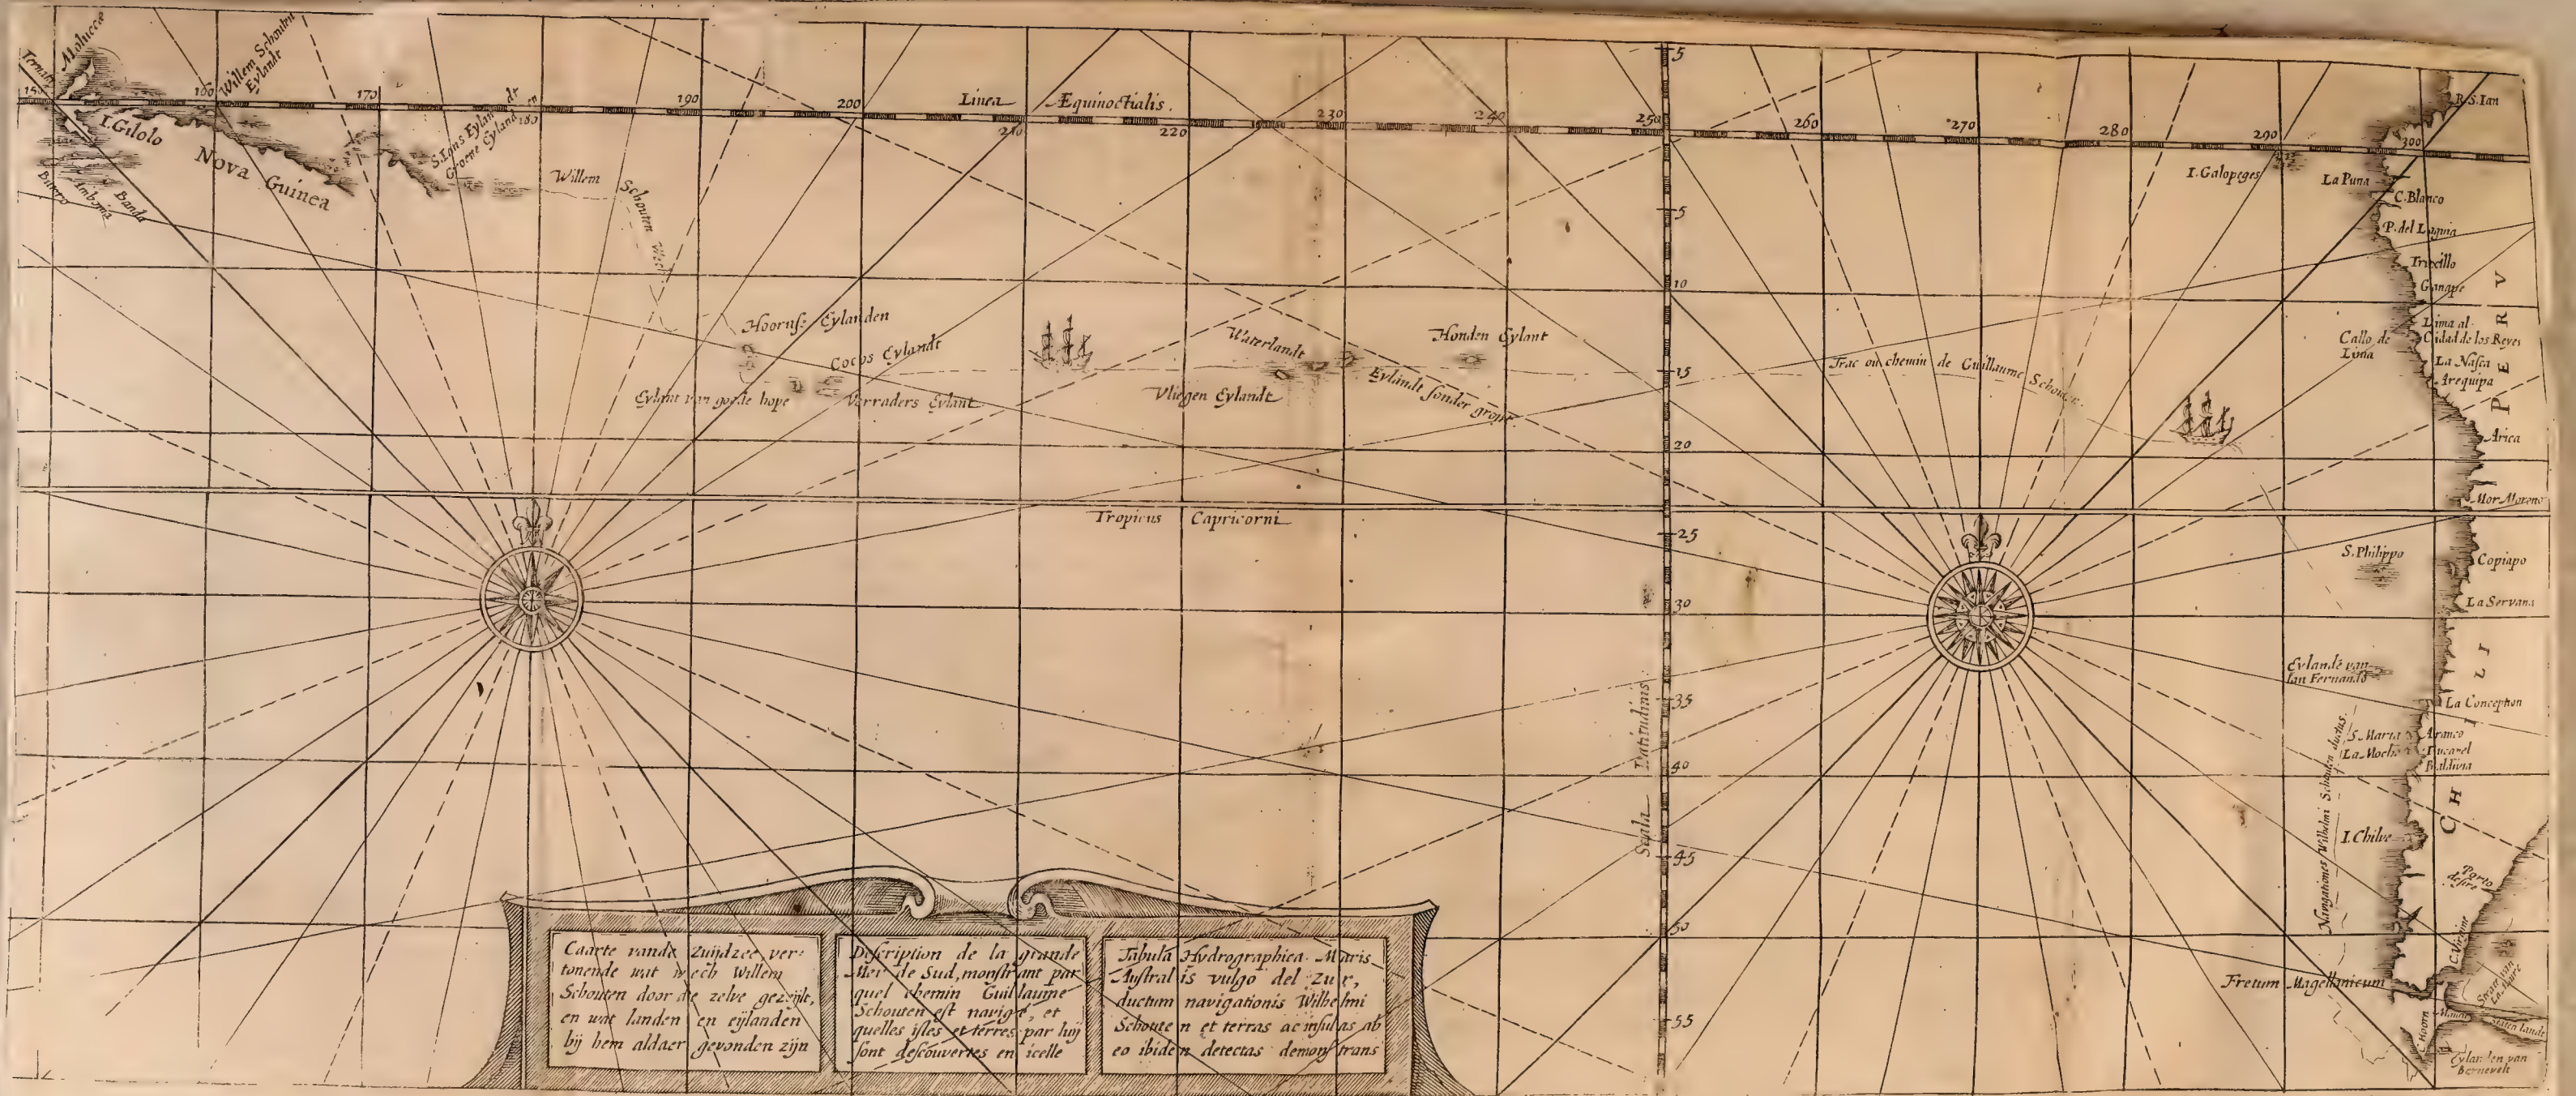 Moluccæ
Willem Schouten
Eylandt
150
160
170
180
190
200
210
220
230
240
250
260
270
280
290
300
Linea Equinoctialis.
I.Gilolo
Nova Guinea
Banda
Amboina
S.Ians Eylandt
Groene Eylanden
Willem Schouten Wech
Hoornse Eylanden
Cocos Eylandt
Eylant van goede hope
Verraders Eylant
Waterlandt
Vliegen Eylandt
Eylandt sonder gront
Honden Eylant
Trac ou chemin de Guillaume Schouten.
Tropicus Capricorni
Scala Latitudinis
5
5
10
15
20
25
30
35
40
45
50
55
R.S.Ian
I.Galopeges
La Puna
C.Blanco
Truxillo
Gunape
Callo de
Lima
Lima al
Cidad de los Reyes
La Nasca
Arequipa
PERV
Arica
Mor Moreno
S.Philippo
Copiapo
La Servana
Eylandē van
Ian Fernando
CHILI
La Conception
S.Maria
La Mocha
Arauco
Baldivia
Navigationes Wilhelmi Schouten ductus.
I.Chilve
Porto
desire
C.Virgine
Fretum Magellanicum
Straet van
La Maire
Staten lande
C.Hoorn
Eylanden van
Bernevelt
Caarte vande Zuijdzee ver-
tonende wat wech Willem
Schouten door die zelve gezeijlt,
en wat landen en eijlanden
bij hem aldaer gevonden zijn
Description de la grande
Mer de Sud, monstrant par
quel chemin Guillaume
Schouten est navigé, et
quelles isles et terres par luij
sont descouvertes en icelle
Tabula Hydrographica Maris
Australis vulgo del Zur,
ductum navigationis Wilhelmi
Schouten et terras ac insulas ab
eo ibidem detectas demonstrans